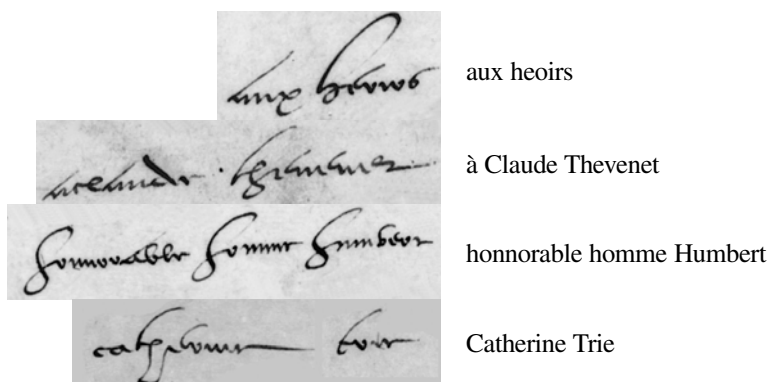 aux heoirs aux heoirs
aclaude thevenet à Claude Thevenet
honnorable homme humbert honnorable homme Humbert
catherine trie Catherine Trie